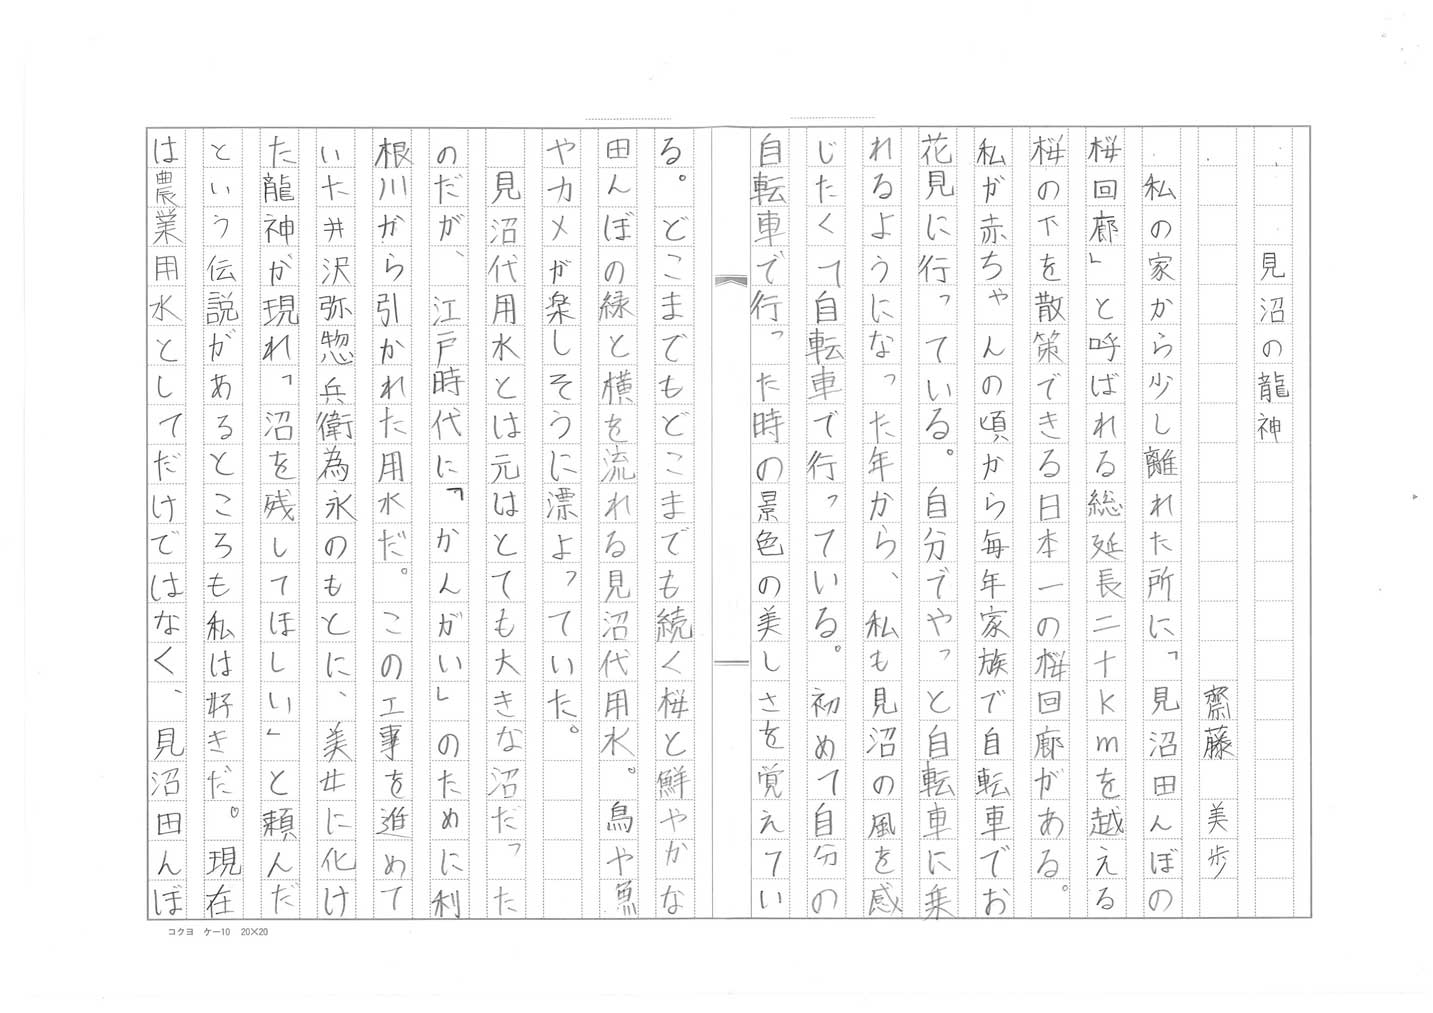 見沼の龍神
齋藤 美歩
私の家から少し離れた所に、「見沼田んぼの
桜回廊」と呼ばれる総延長二十kmを越える
桜の下を散策できる日本一の桜回廊がある。
私が赤ちゃんの頃から毎年家族で自転車でお
花見に行っている。自分でやっと自転車に乗
れるようになった年から、私も見沼の風を感
じたくて自転車で行っている。初めて自分の
自転車で行った時の景色の美しさを覚えてい
る。どこまでもどこまでも続く桜と鮮やかな
田んぼの緑と横を流れる見沼代用水。鳥や魚
やカメが楽しそうに漂よっていた。
見沼代用水とは元はとても大きな沼だった
のだが、江戸時代に「かんがい」のために利
根川から引かれた用水だ。この工事を進めて
いた井沢弥惣兵衛為永のもとに、美女に化け
た龍神が現れ「沼を残してほしい」と頼んだ
という伝説があるところも私は好きだ。現在
は農業用水としてだけではなく、見沼田んぼ
コクヨ ケー10 20×20